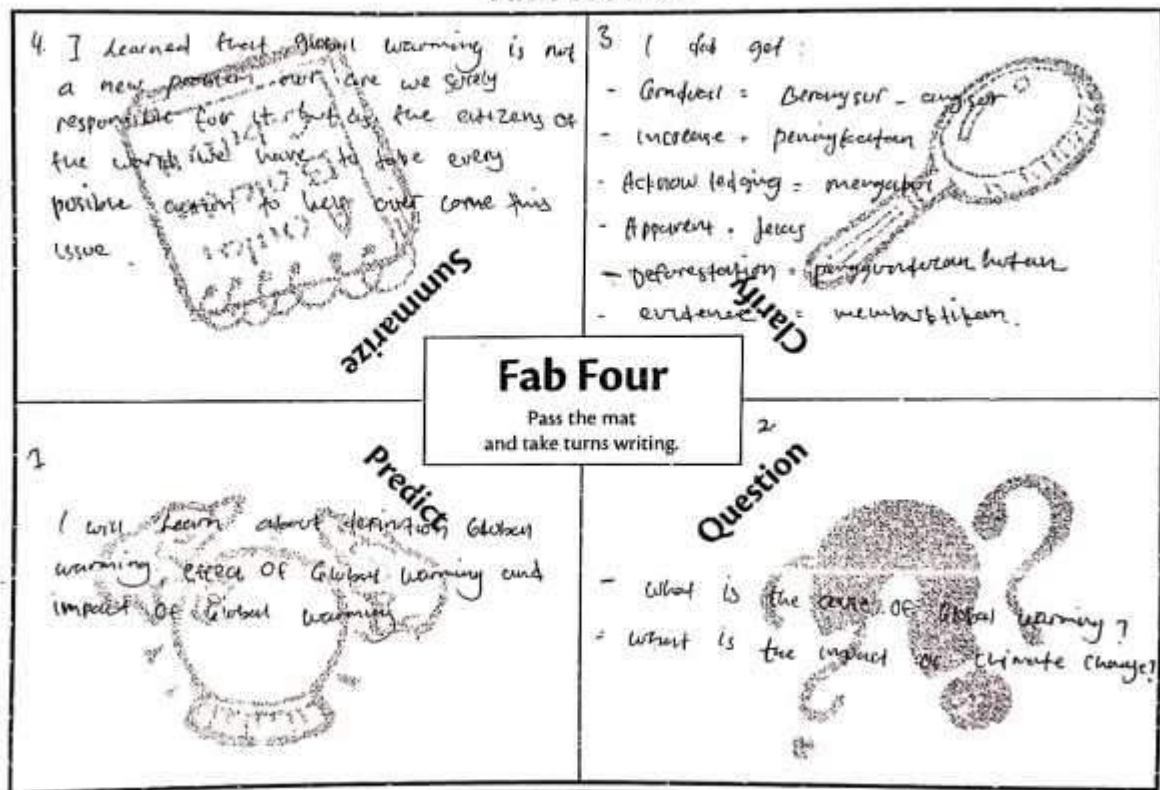 4. I Learned that global warming is not
a new problem nor are we solely
responsible for it. but as the citizens of
the world we have to take every
posible action to help over come this
issue.
Summarize
3 I did get :
- Gradual = Berangsur - angsur
- increase = peningkatan
- Acknowledging = mengakui
- Apparent = jelas
- Deforestation = penggundulan hutan
- evidence = membuktikan.
Clarify
Fab Four
Pass the mat
and take turns writing.
1
Predict
I will Learn about definition Global
warming, effect Of Global warming and
impact of Global warming
2
Question
- What is the of Global warming ?
- What is the impact of climate change?